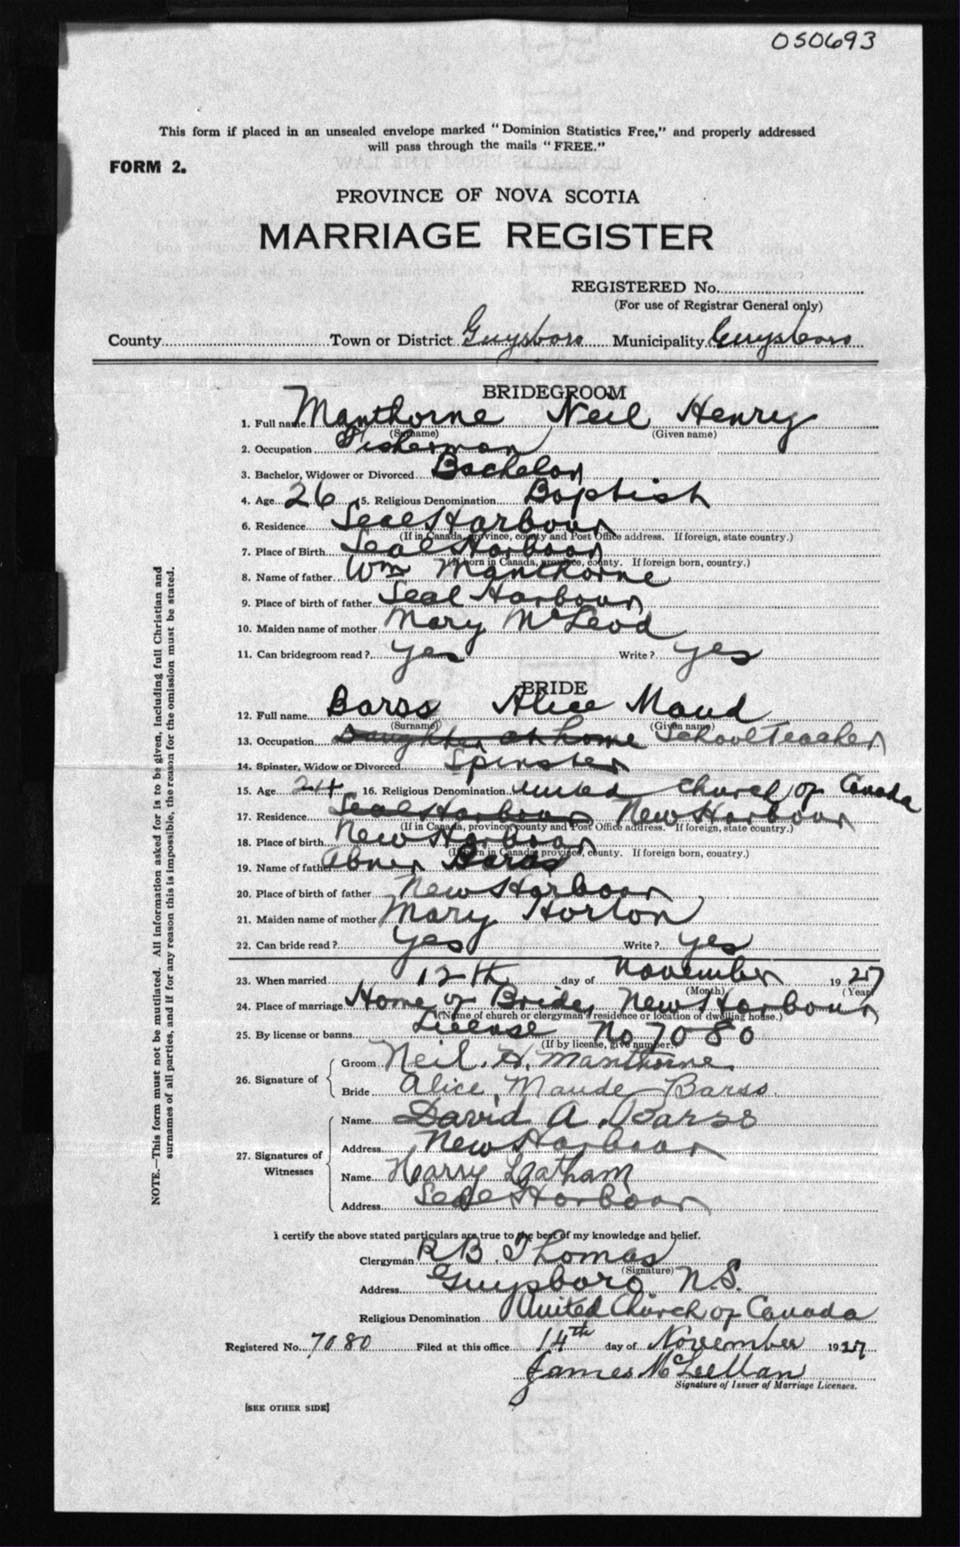 050693
This form if placed in an unsealed envelope marked "Dominion Statistics Free," and properly addressed
will pass through the mails "FREE."
FORM 2.
PROVINCE OF NOVA SCOTIA
MARRIAGE REGISTER
REGISTERED No.
(For use of Registrar General only)
County Town or District Guysboro Municipality Guysboro
BRIDEGROOM
1. Full name Manthorne Neil Henry
(Surname) (Given name)
2. Occupation Fisherman
3. Bachelor, Widower or Divorced Bachelor
4. Age 26 5. Religious Denomination Baptist
6. Residence Seal Harbour
(If in Canada, province, county and Post Office address. If foreign, state country.)
7. Place of Birth Seal Harbour
(If born in Canada, province, county. If foreign born, country.)
8. Name of father Wm Manthorne
9. Place of birth of father Seal Harbour
10. Maiden name of mother Mary McLeod
11. Can bridegroom read? yes Write? yes
BRIDE
12. Full name Barss Alice Maud
(Surname) (Given name)
13. Occupation Daughter at home School Teacher
14. Spinster, Widow or Divorced Spinster
15. Age 24 16. Religious Denomination United Church of Canada
17. Residence Seal Harbour New Harbour
(If in Canada, province county and Post Office address. If foreign, state country.)
18. Place of birth New Harbour
(If born in Canada province, county. If foreign born, country.)
19. Name of father Abner Barss
20. Place of birth of father New Harbour
21. Maiden name of mother Mary Horton
22. Can bride read? yes Write? yes
23. When married 12th day of November 1927
(Month) (Year)
24. Place of marriage Home of Bride, New Harbour
(Name of church or clergyman's residence or location of dwelling house.)
25. By license or banns License No 7080
(If by license, give number.)
26. Signature of Groom Neil. H. Manthorne.
Bride Alice, Maude Barss.
27. Signatures of Witnesses Name David A. Barss
Address New Harbour
Name Harry Latham
Address Seal Harbour
I certify the above stated particulars are true to the best of my knowledge and belief.
Clergyman R B. Thomas
(Signature)
Address Guysboro N.S.
Religious Denomination United Church of Canada
Registered No. 7080 Filed at this office 14th day of November 1927
James McLellan
Signature of Issuer of Marriage Licenses.
[SEE OTHER SIDE]
NOTE.—This form must not be mutilated. All information asked for is to be given, including full Christian and
surnames of all parties, and if for any reason this is impossible, the reason for the omission must be stated.